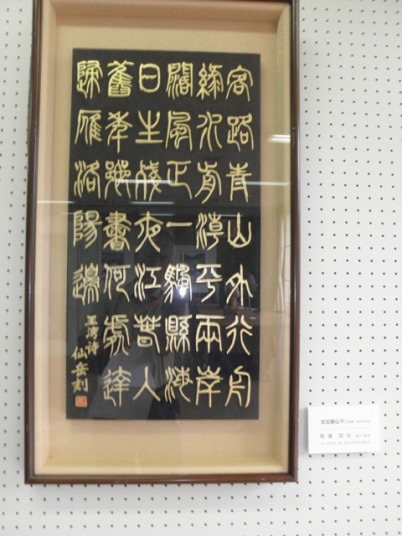 客路青山外行舟
綠水前潮平兩岸
闊風正一帆縣海
日生殘夜江春入
舊年鄉書何處達
歸雁洛陽邊
王湾詩
仙岳刻
次北固山下